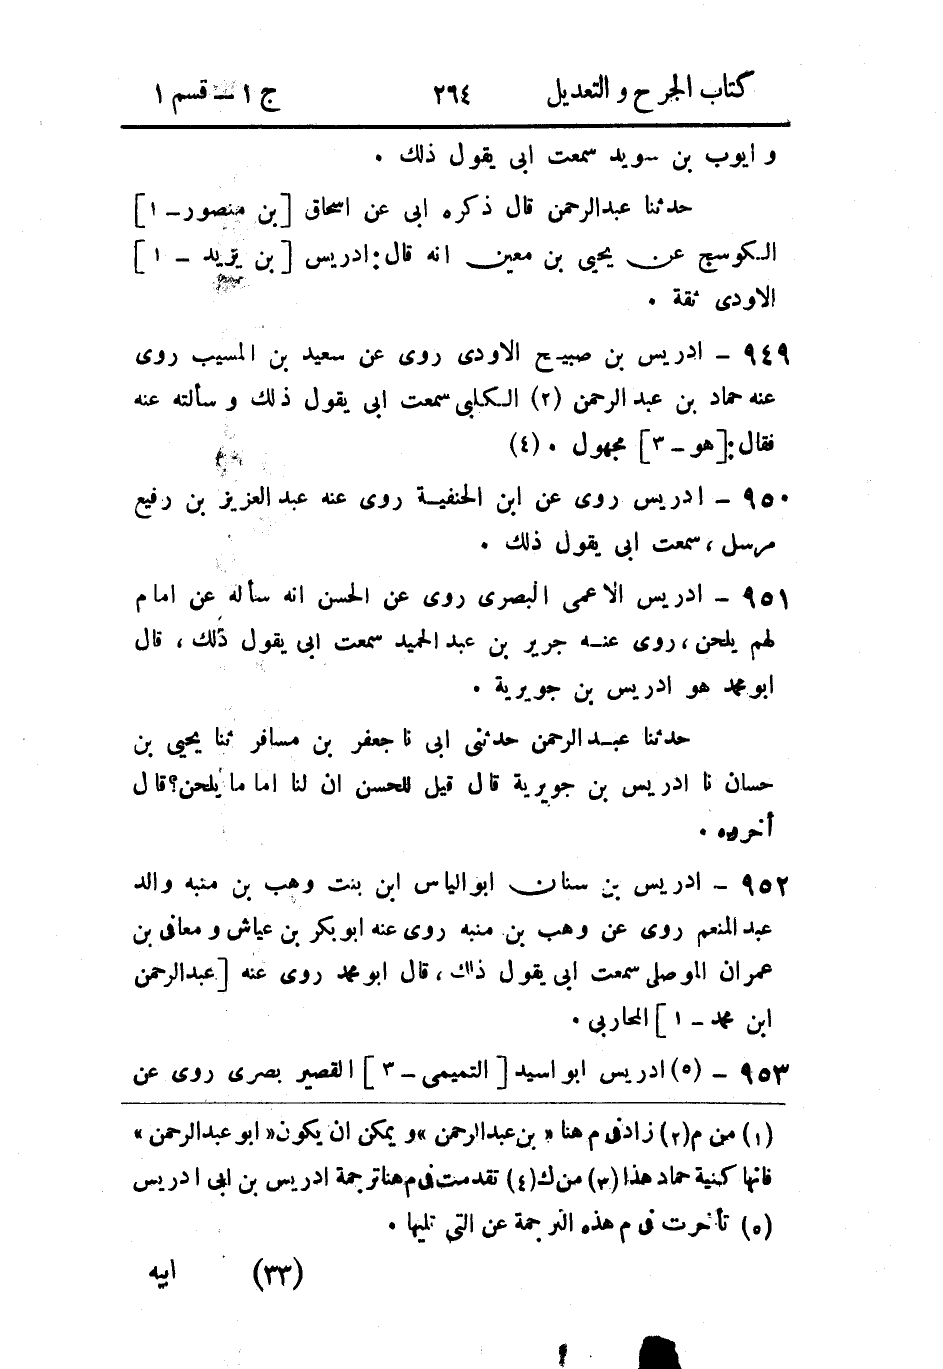 كتاب الجرح و التعديل ٢٦٤ ج ١ – قسم ١
و ايوب بن سويد سمعت ابى يقول ذلك .
حدثنا عبدالرحمن قال ذكره ابى عن اسحاق [ بن منصور – ١ ]
الكوسج عن يحيى بن معين انه قال : ادريس [ بن يزيد – ١ ]
الاودى ثقة .
٩٤٩ – ادريس بن صبيح الاودى روى عن سعيد بن المسيب روى
عنه حماد بن عبد الرحمن (٢) الكلبى سمعت ابى يقول ذلك و سألته عنه
فقال : [ هو – ٣ ] مجهول . (٤)
٩٥٠ – ادريس روى عن ابن الحنفية روى عنه عبد العزيز بن رفيع
مرسل ، سمعت ابى يقول ذلك .
٩٥١ – ادريس الاعمى البصرى روى عن الحسن انه سأله عن امام
لهم يلحن ، روى عنه جرير بن عبد الحميد سمعت ابى يقول ذلك ، قال
ابو محمد هو ادريس بن جويرية .
حدثنا عبد الرحمن حدثنى ابى نا جعفر بن مسافر ثنا يحيى بن
حسان نا ادريس بن جويرية قال قيل للحسن ان لنا اماما يلحن ؟ قال
أخروه .
٩٥٢ – ادريس بن سنان ابو الياس ابن بنت وهب بن منبه والد
عبد المنعم روى عن وهب بن منبه روى عنه ابو بكر بن عياش و معافى بن
عمران الموصلى سمعت ابى يقول ذلك ، قال ابو محمد روى عنه [ عبدالرحمن
ابن محمد – ١ ] المحاربى .
٩٥٣ – (٥) ادريس ابو اسيد [ التميمى – ٣ ] القصير بصرى روى عن
(١) من م (٢) زاد فى م هنا « بن عبدالرحمن » و يمكن ان يكون « ابو عبدالرحمن »
فانها كنية حماد هذا (٣) من ك (٤) تقدمت فى م هنا ترجمة ادريس بن ابى ادريس
(٥) تأخرت فى م هذه الترجمة عن التى تليها .
(٣٣) ابيه